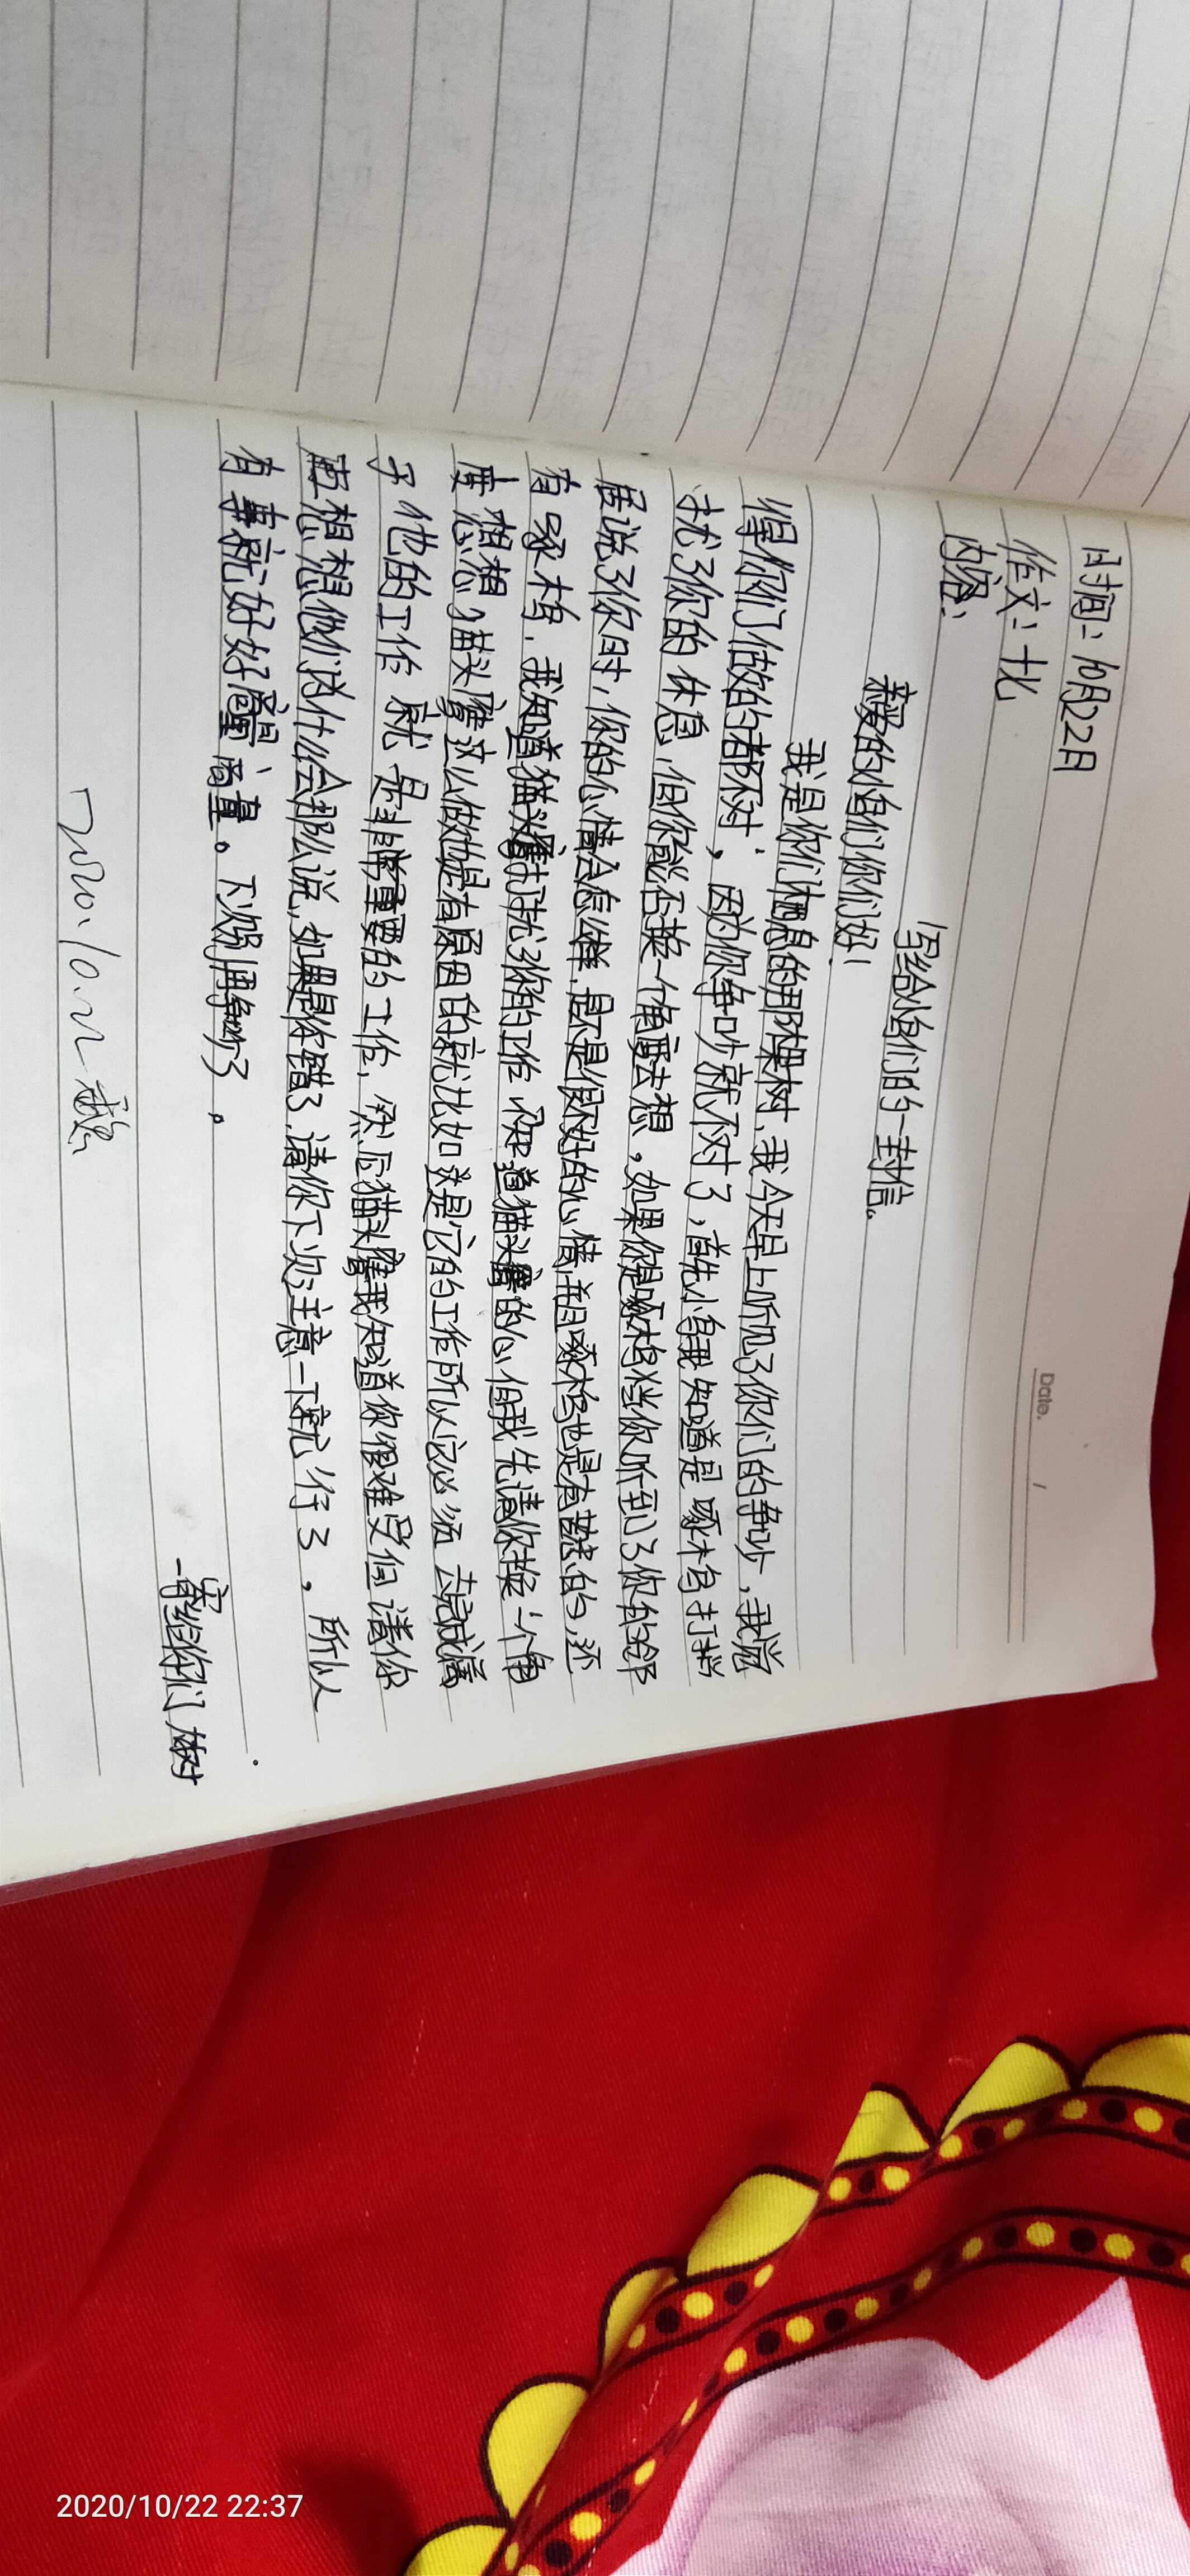 Date. /
时间：10月22日
作文：十比
内容：
写给小鸟们的一封信。
亲爱的小鸟们你们好！
我是你们栖息的那棵树，我今天早上听见了你们的争吵，我觉
得你们做的都不对，因为你争吵就不对了，首先小鸟我知道是啄木鸟打拦
扰了你的休息，但你能否换一个角度去想，如果你是啄木鸟当你听到了你的邻
居说了你时，你的心情会怎么样，是不是很不好的心情，并且啄木鸟也是有苦的，还
有啄木鸟，我知道猫头鹰打扰了你的工作 你知道猫头鹰的心，但我先请你换一个角
度想想，猫头鹰这么做也是有原因的就比如这是它的工作所以它必须去完成属
于他的工作 就是非常重要的工作，然后猫头鹰我知道你很难受但请你
也想想他们为什么会那么说，如果是你错了，请你下次注意一下就行了，所以
有事就好好商量，商量。下次别再争吵了。
—寄给你们 树
2020.10.22
2020/10/22 22:37